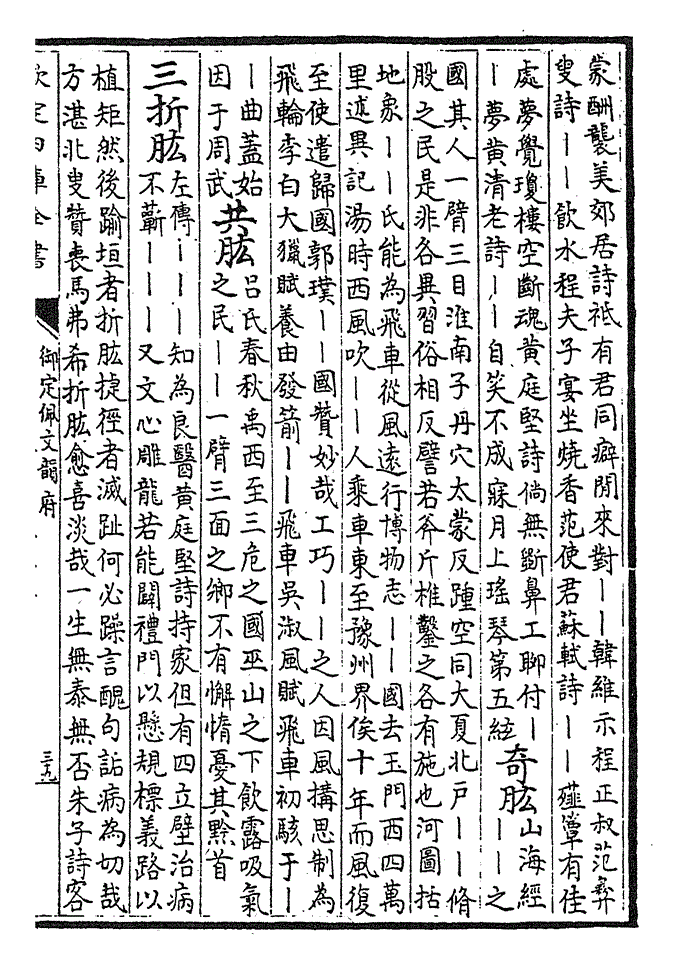 蒙酬襲美郊居詩祗有君同癖閒來對丨丨韓維示程正叔范彝
叟詩丨丨飲水程夫子宴坐燒香范使君蘇軾詩丨丨薤簟有佳
處夢覺瓊樓空斷魂黃庭堅詩倘無斷鼻工聊付丨
丨夢黃清老詩丨丨自笑不成寐月上瑤琴第五絃
奇肱
山海經
丨丨之
國其人一臂三目淮南子丹穴太蒙反踵空同大夏北戶丨丨脩
股之民是非各異習俗相反譬若斧斤椎鑿之各有施也河圖括
地象丨丨氏能為飛車從風遠行博物志丨丨國去玉門西四萬
里述異記湯時西風吹丨丨人乘車東至豫州界俟十年而風復
至使遣歸國郭璞丨丨國贊妙哉工巧丨丨之人因風搆思制為
飛輪李白大獵賦養由發箭丨丨飛車吳淑風賦飛車初駭于丨
丨曲蓋始
因于周武
共肱
呂氏春秋禹西至三危之國巫山之下飲露吸氣
之民丨丨一臂三面之鄉不有懈惰憂其黔首
三折肱
左傳丨丨丨知為良醫黃庭堅詩持家但有四立壁治病
不蘄丨丨丨又文心雕龍若能闢禮門以懸規標義路以
植矩然後踰垣者折肱捷徑者滅趾何必躁言醜句詬病為切哉
方湛北叟贊喪馬弗希折肱愈喜淡哉一生無泰無否朱子詩客
欽定四庫全書
御定佩文韻府
三十九